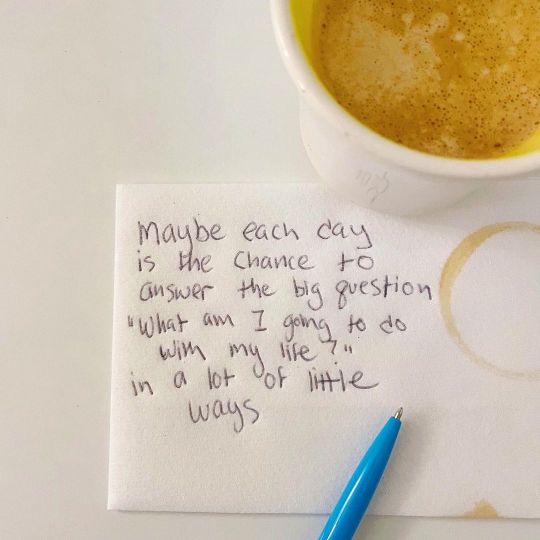 Maybe each day
is the chance to
answer the big question
"What am I going to do
with my life?"
in a lot of little
ways